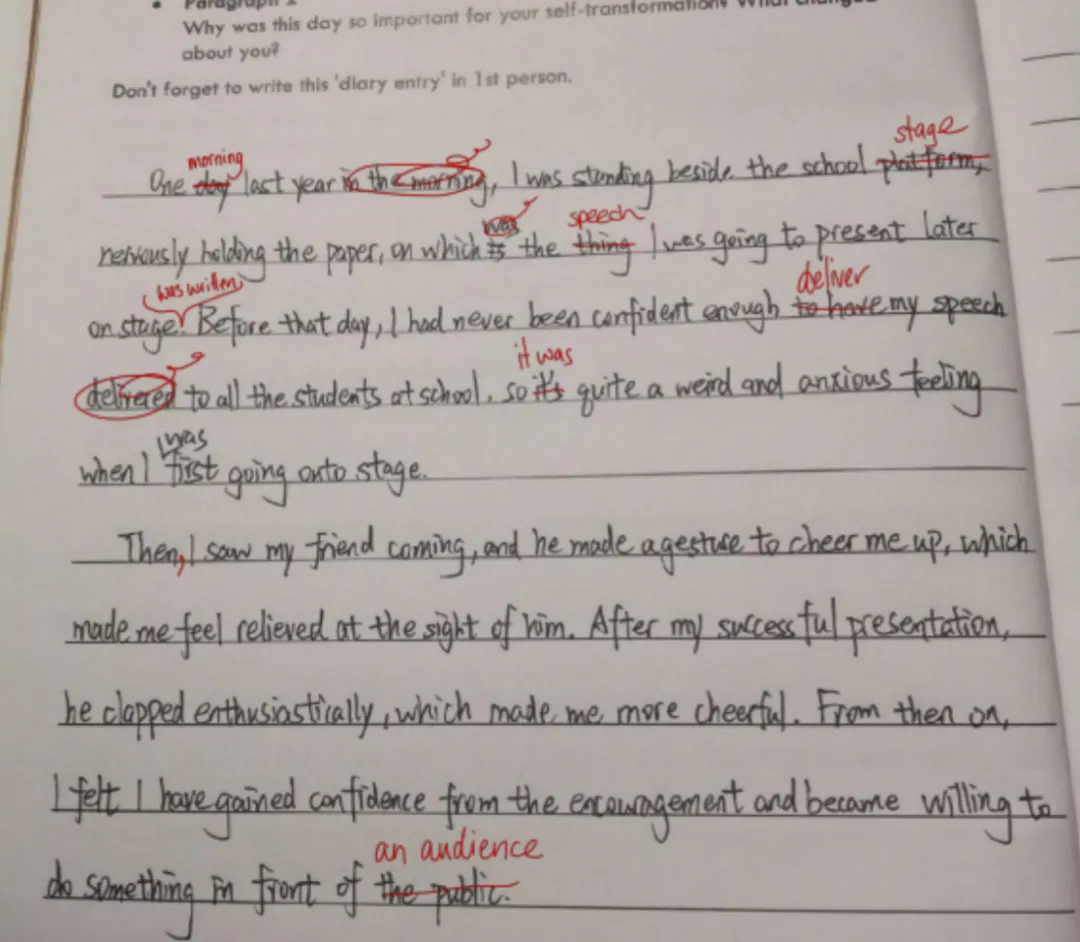 Paragraph 2
Why was this day so important for your self-transformation? What changed
about you?
Don't forget to write this 'diary entry' in 1st person.
morning stage
One day last year in the morning, I was standing beside the school platform,
was speech
nervously holding the paper, on which is the thing I was going to present later
was written deliver
on stage. Before that day, I had never been confident enough to have my speech
it was
delivered to all the students at school, so it's quite a weird and anxious feeling
was
when I first going onto stage.
Then, I saw my friend coming, and he made a gesture to cheer me up, which
made me feel relieved at the sight of him. After my successful presentation,
he clapped enthusiastically, which made me more cheerful. From then on,
I felt I have gained confidence from the encouragement and became willing to
an audience
do something in front of the public.